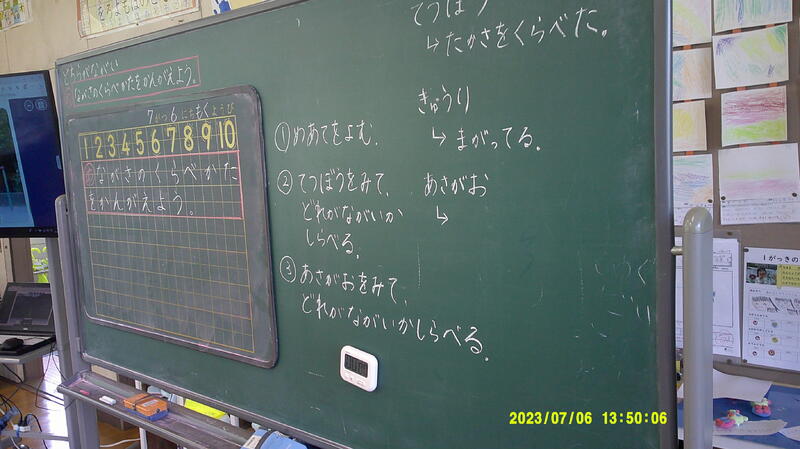 どちらがながい
ながさのくらべかたをかんがえよう。
7がつ6にちもくようび
1 2 3 4 5 6 7 8 9 10
めながさのくらべかた
をかんがえよう。
①めあてをよむ.
②てつぼうをみて、
どれがながいか
しらべる。
③あさがおをみて、
どれがながいかしらべる。
てつぼう
↳たかさをくらべた。
きゅうり
↳まがってる。
あさがお
↳
1がっきの
2023/07/06 13:50:06